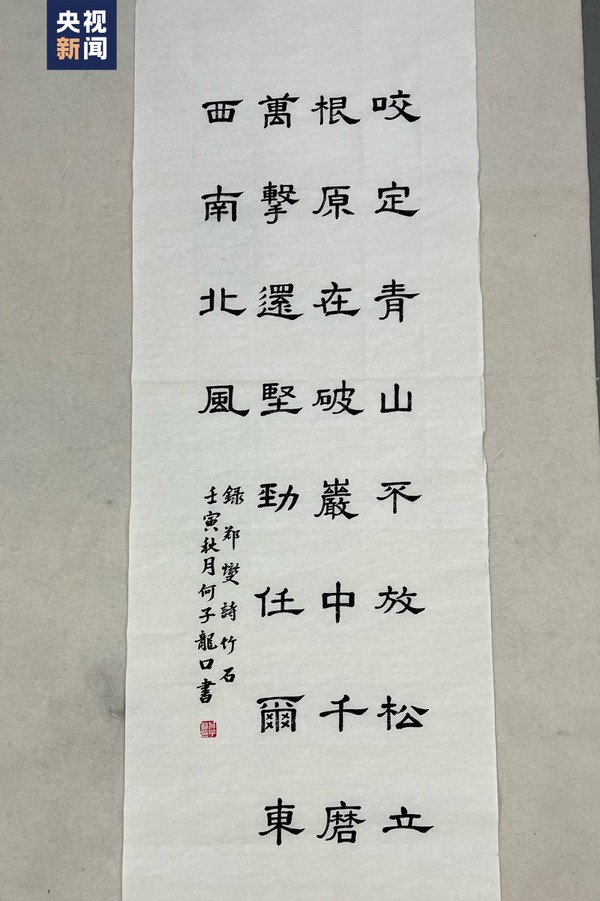 央视
新闻
咬定青山不放松立
根原在破巖中千磨
萬擊還堅勁任爾東
西南北風
録郑燮詩竹石
壬寅秋月何子龍口書